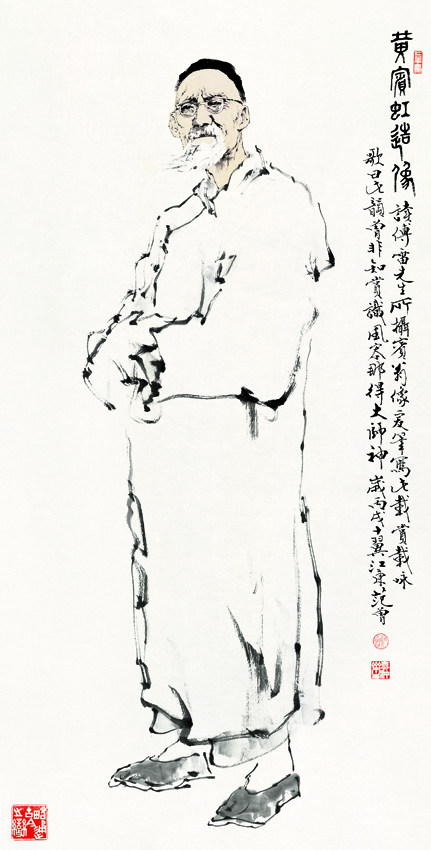 黄賓虹造像 讀傅雷先生所攝賓翁像爰筆寫此載賞載咏
歌曰此韻曾非知賞識風容那得大師神歲丙戌十翼江東范曾